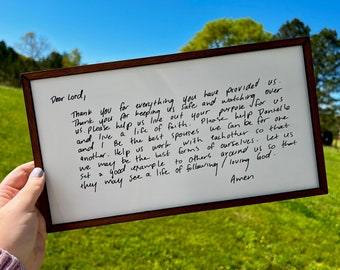 Dear Lord,
Thank you for everything you have provided us.
Thank you for keeping us safe and watching over
us. Please help us live out your purpose for us
and live a life of faith. Please help Danielle
and I Be the best spouses we can be for one
another. Help us work with eachother so that
we may be the best forms of ourselves. Let us
set a good example to others around us so that
they may see a life of following / loving God.
Amen